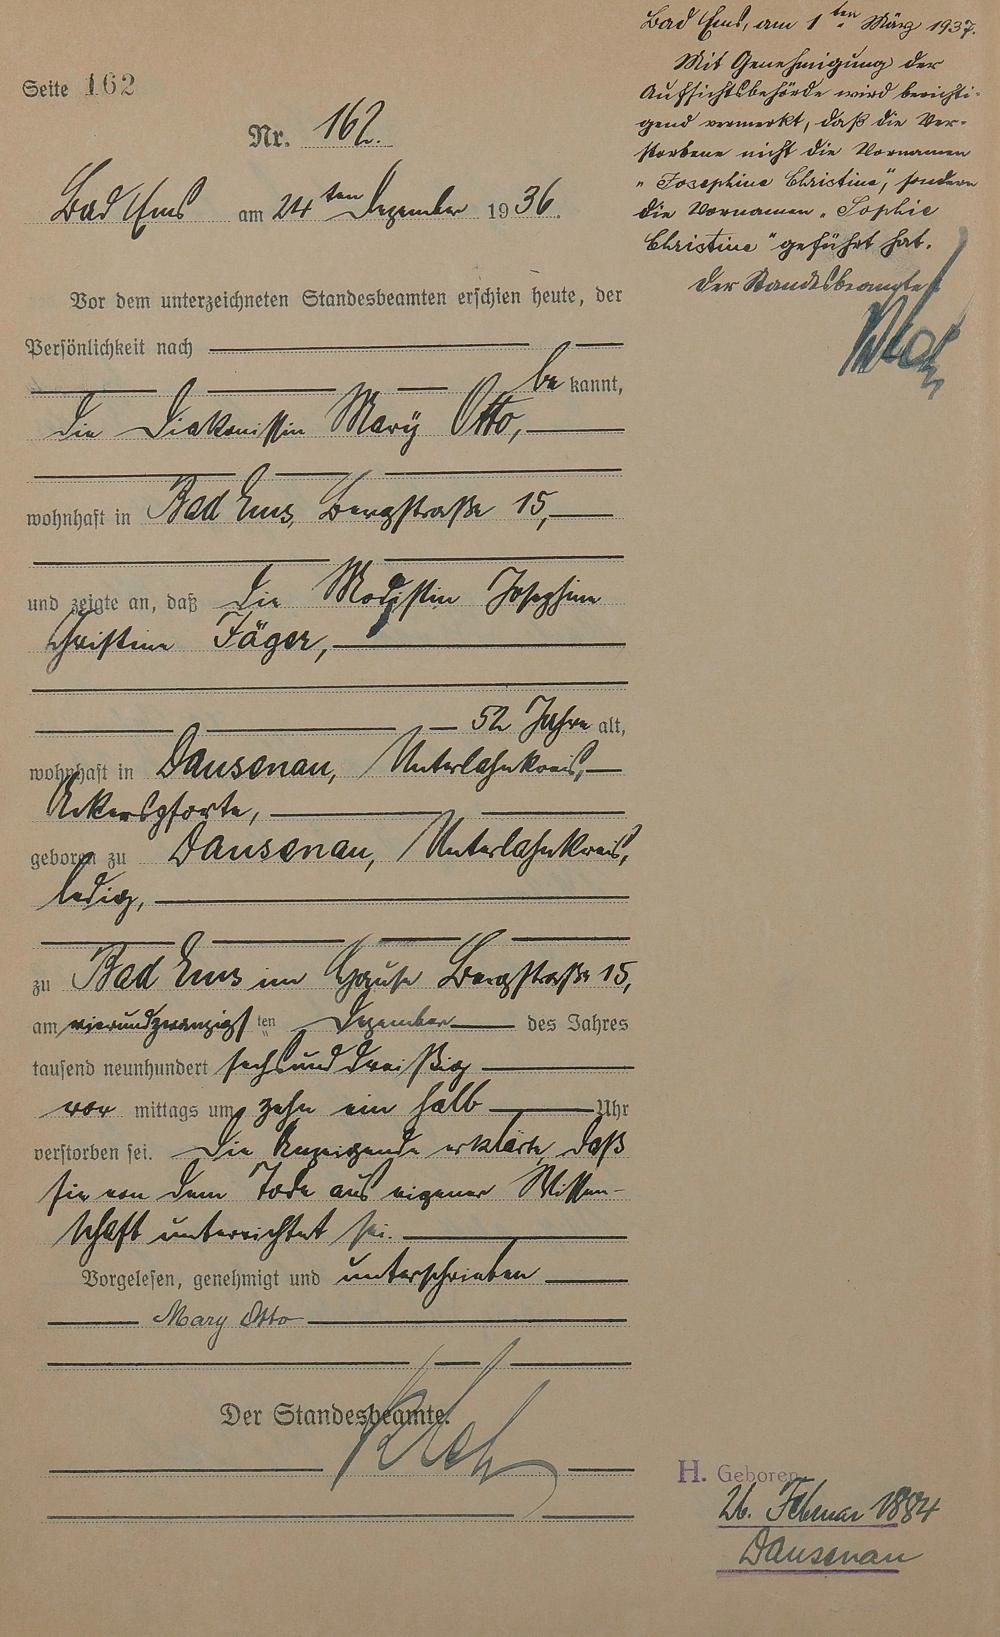 Seite 162
Nr. 162.
Bad Ems am 24ten Dezember 1936.
Vor dem unterzeichneten Standesbeamten erschien heute, der
Persönlichkeit nach
be kannt,
die Diakonissin Mary Otto,
wohnhaft in Bad Ems, Bergstraße 15,
und zeigte an, daß die Modistin Josephine
Christine Jäger,
52 Jahre alt,
wohnhaft in Dausenau, Unterlahnkreis,
geboren zu Dausenau, Unterlahnkreis,
ledig,
zu Bad Ems im Hause Bergstraße 15,
am vierundzwanzigsten Dezember des Jahres
tausend neunhundert sechsunddreißig
vor mittags um zehn ein halb Uhr
verstorben sei. Die Anzeigende erklärte, daß
sie von dem Tode aus eigener Wissen-
schaft unterrichtet sei.
Vorgelesen, genehmigt und unterschrieben
Mary Otto
Der Standesbeamte.
Bad Ems, am 1ten März 1937.
Mit Genehmigung der
Aufsichtsbehörde wird berichti-
gend vermerkt, daß die Ver-
storbene nicht die Vornamen
"Josephine Christine", sondern
die Vornamen "Sophie
Christine" geführt hat.
Der Standesbeamte
H. Geboren
26. Februar 1884
Dausenau